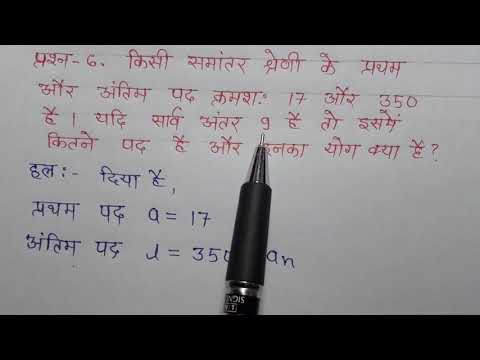 प्रश्न-6. किसी समांतर श्रेणी के प्रथम
और अंतिम पद क्रमशः 17 और 350
है। यदि सार्व अंतर 9 है तो इसमें
कितने पद है और इनका योग क्या है?
हल:- दिया है,
प्रथम पद a = 17
अंतिम पद l = 350 an